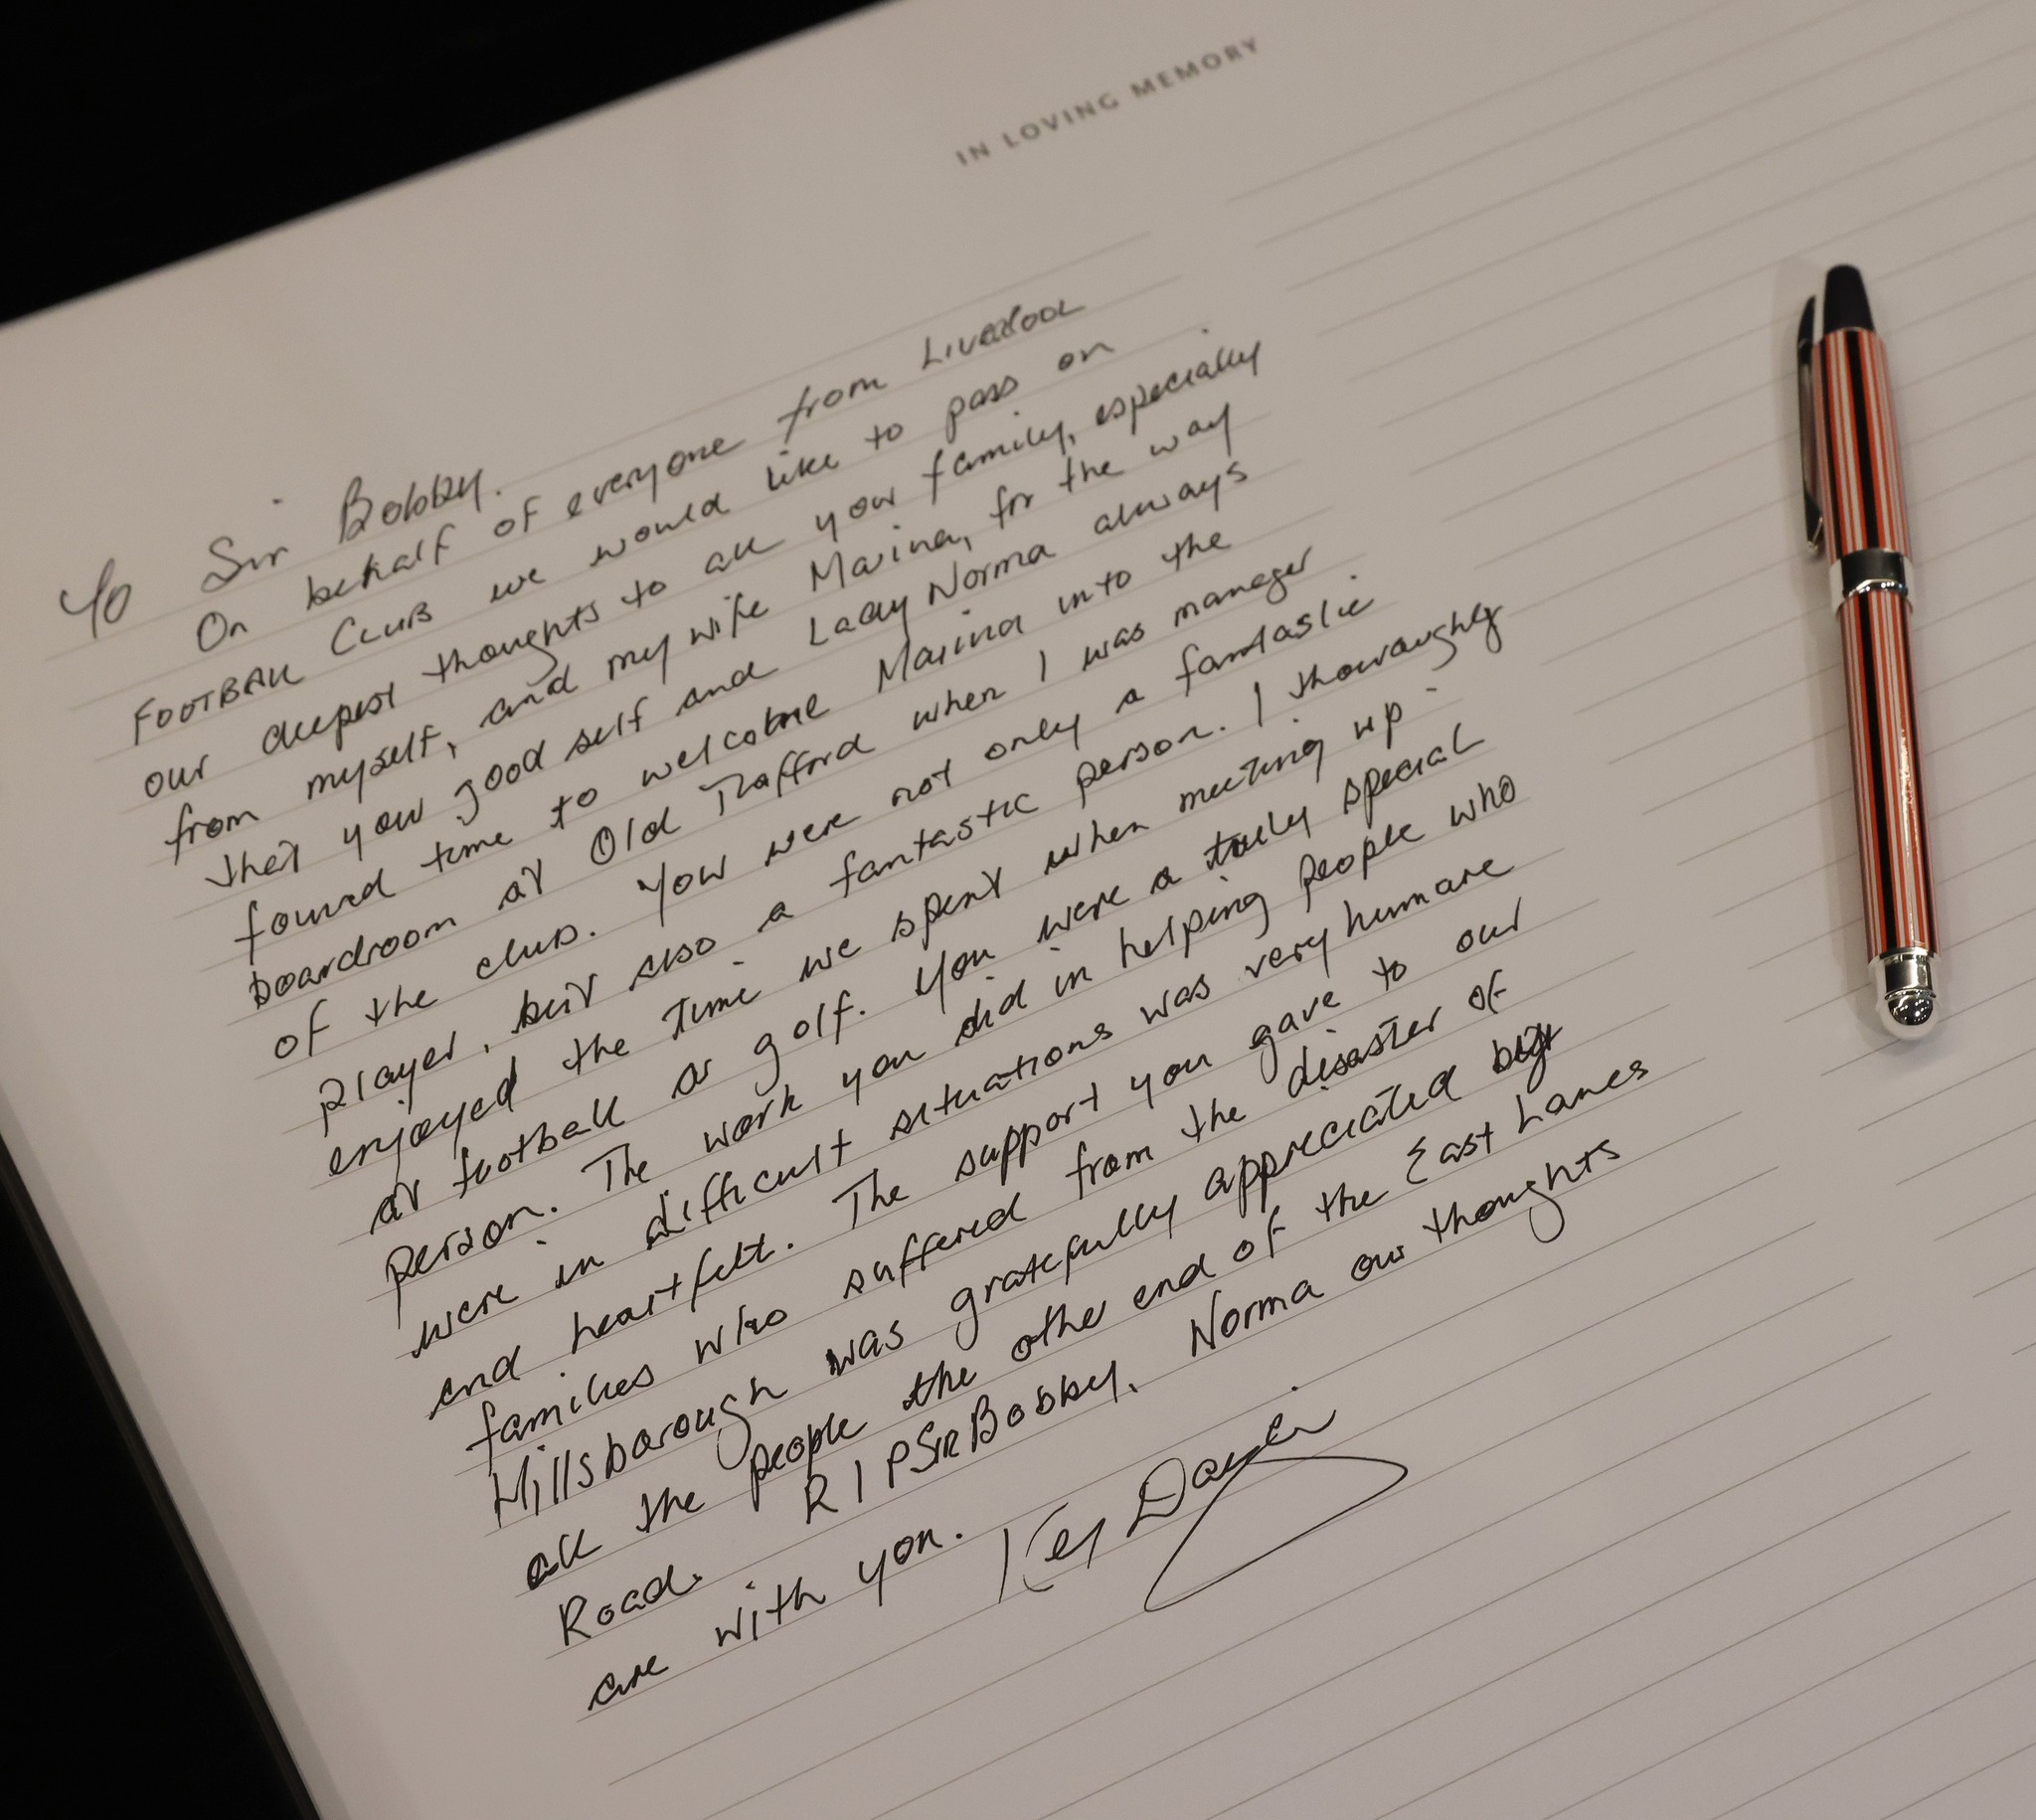 IN LOVING MEMORY
To Sir Bobby.
On behalf of everyone from Liverpool
Football Club we would like to pass on
our deepest thoughts to all your family, especially
from myself, and my wife Marina, for the way
that your good self and Lady Norma always
found time to welcome Marina into the
boardroom at Old Trafford when I was manager
of the club. You were not only a fantastic
player, but also a fantastic person. I thoroughly
enjoyed the time we spent when meeting up -
at football or golf. You were a truly special
person. The work you did in helping people who
were in difficult situations was very humane
and heartfelt. The support you gave to our
families who suffered from the disaster of
Hillsborough was gratefully appreciated by
all the people the other end of the East Lancs
Road. R I P Sir Bobby. Norma our thoughts
are with you.